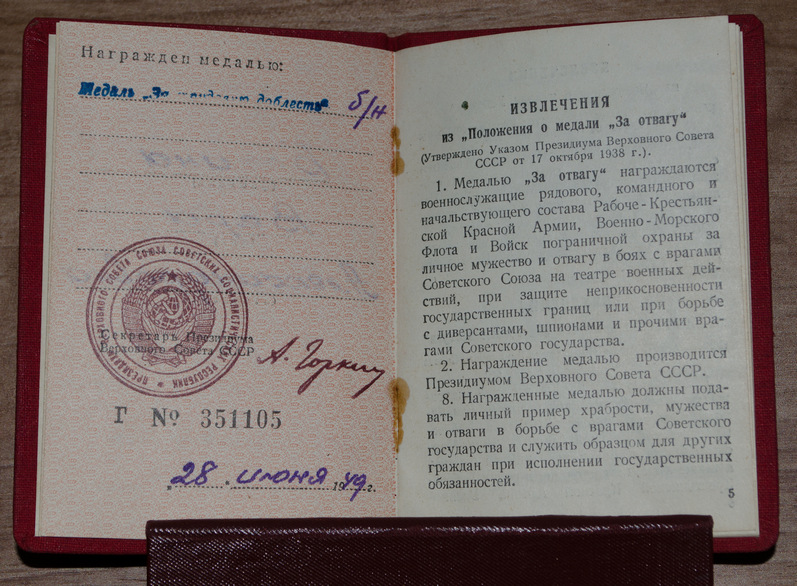 Награжден медалью:
Медаль „За трудовую доблесть“ б/н
ПРЕЗИДИУМ ВЕРХОВНОГО СОВЕТА СОЮЗА СОВЕТСКИХ СОЦИАЛИСТИЧЕСКИХ РЕСПУБЛИК
Секретарь Президиума
Верховного Совета СССР
А. Горкин
Г № 351105
„28 „ июня 1949 г.
ИЗВЛЕЧЕНИЯ
из „Положения о медали „За отвагу“
(Утверждено Указом Президиума Верховного Совета
СССР от 17 октября 1938 г.).
1. Медалью „За отвагу“ награждаются
военнослужащие рядового, командного и
начальствующего состава Рабоче-Крестьян-
ской Красной Армии, Военно-Морского
Флота и Войск пограничной охраны за
личное мужество и отвагу в боях с врагами
Советского Союза на театре военных дей-
ствий, при защите неприкосновенности
государственных границ или при борьбе
с диверсантами, шпионами и прочими вра-
гами Советского государства.
2. Награждение медалью производится
Президиумом Верховного Совета СССР.
8. Награжденные медалью должны пода-
вать личный пример храбрости, мужества
и отваги в борьбе с врагами Советского
государства и служить образцом для других
граждан при исполнении государственных
обязанностей.
5